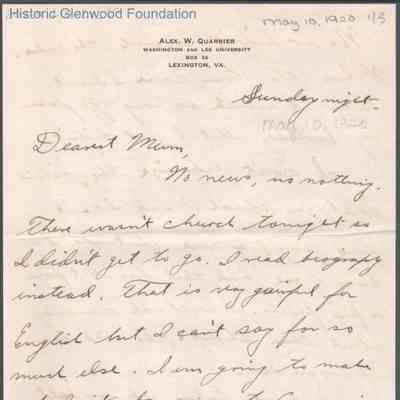 Historic Glenwood Foundation
May 10, 1920 1/3
ALEX. W. QUARRIER
WASHINGTON AND LEE UNIVERSITY
BOX
LEXINGTON, VA.
Sunday night.
May 10, 1920
Dearest Mum,
No news, no nothing.
There wasn't church tonight so
I didn't get to go. I read biograpy
instead. That is very gainful for
English but I can't say for so
much else. I am going to make